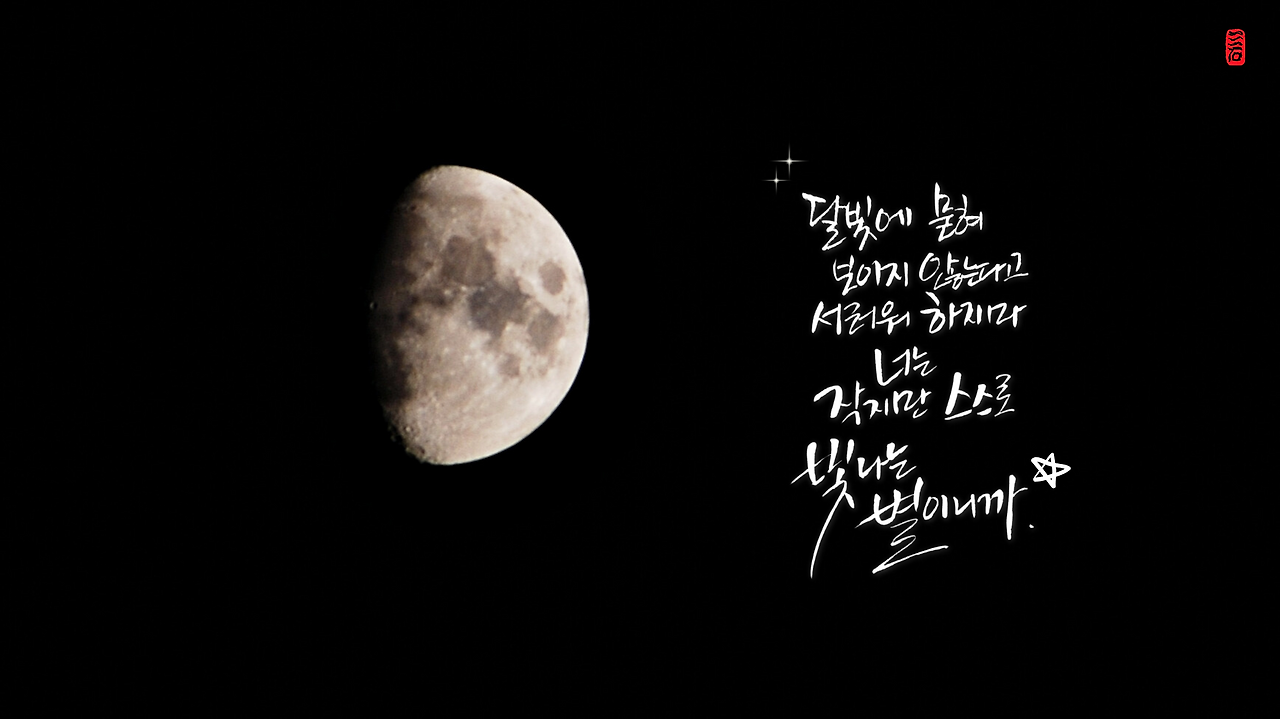 달빛에 묻혀
보이지 않는다고
서러워 하지마라
너는
작지만 스스로
빛나는
별이니까.